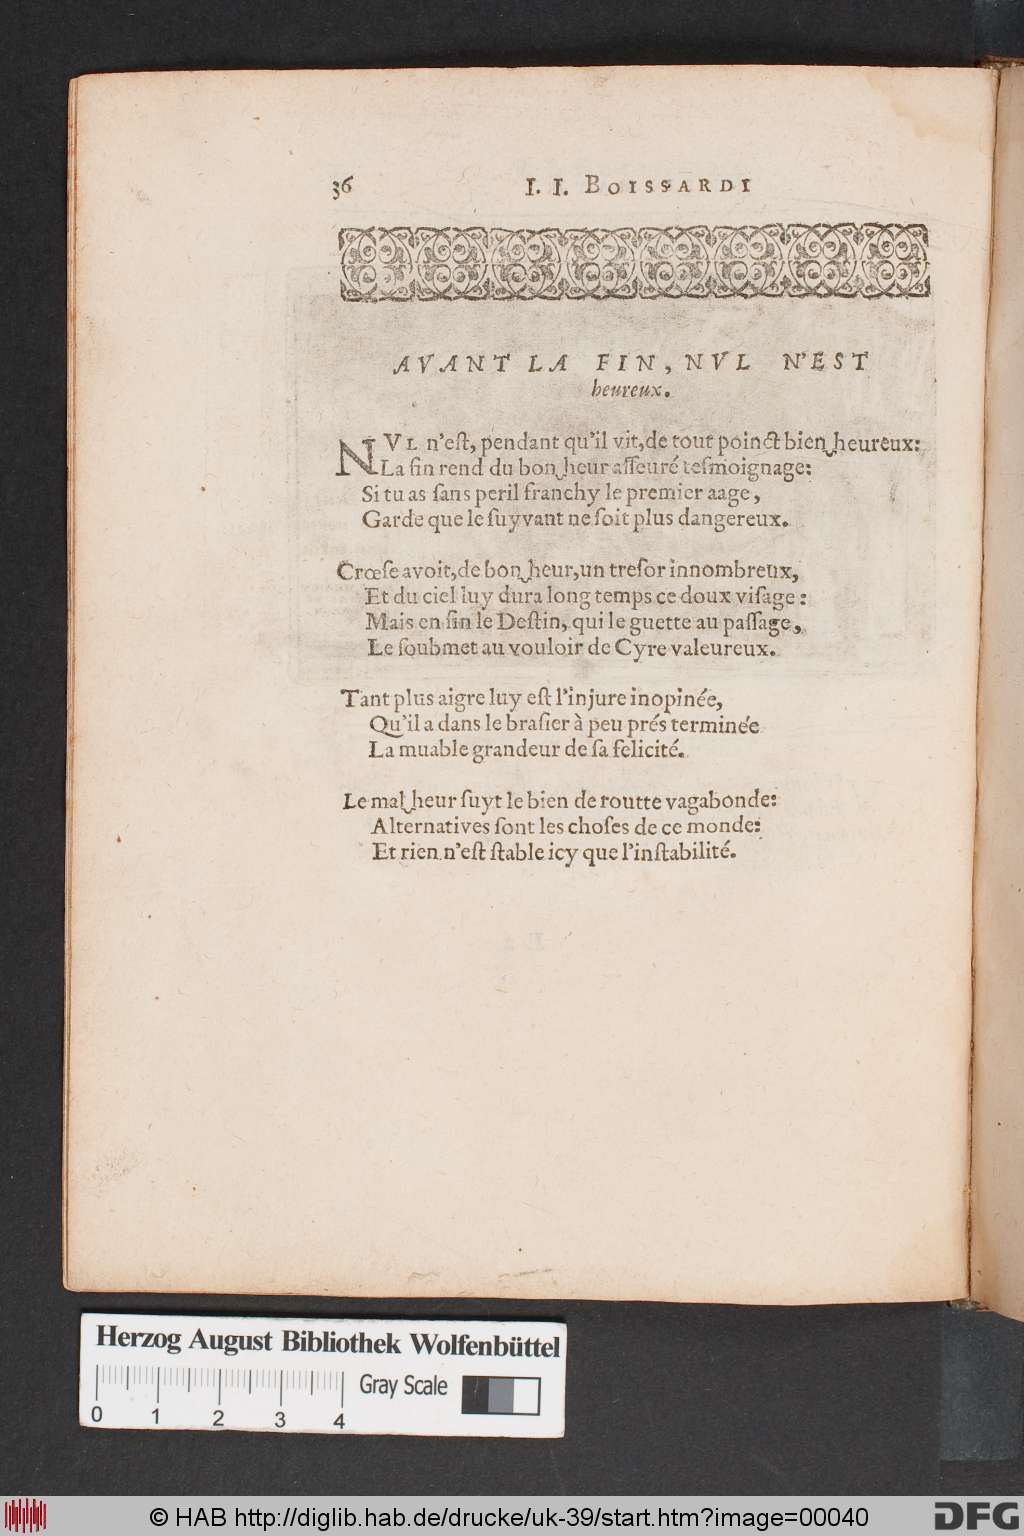 36 I. I. BOISSARDI
AVANT LA FIN, NVL N'EST
heureux.
NVL n'eſt, pendant qu'il vit, de tout poinct bien‿heureux:
La fin rend du bon‿heur aſſeuré teſmoignage:
Si tu as ſans peril franchy le premier aage,
Garde que le ſuyvant ne ſoit plus dangereux.
Crœſe avoit, de bon‿heur, un treſor innombreux,
Et du ciel luy dura long temps ce doux viſage:
Mais en fin le Deſtin, qui le guette au paſſage,
Le ſoubmet au vouloir de Cyre valeureux.
Tant plus aigre luy eſt l'injure inopinée,
Qu'il a dans le braſier à peu prés terminée
La muable grandeur de ſa felicité.
Le mal‿heur ſuyt le bien de routte vagabonde:
Alternatives ſont les choſes de ce monde:
Et rien n'eſt ſtable icy que l'inſtabilité.
Herzog August Bibliothek Wolfenbüttel
Gray Scale
0 1 2 3 4
© HAB http://diglib.hab.de/drucke/uk-39/start.htm?image=00040
DFG